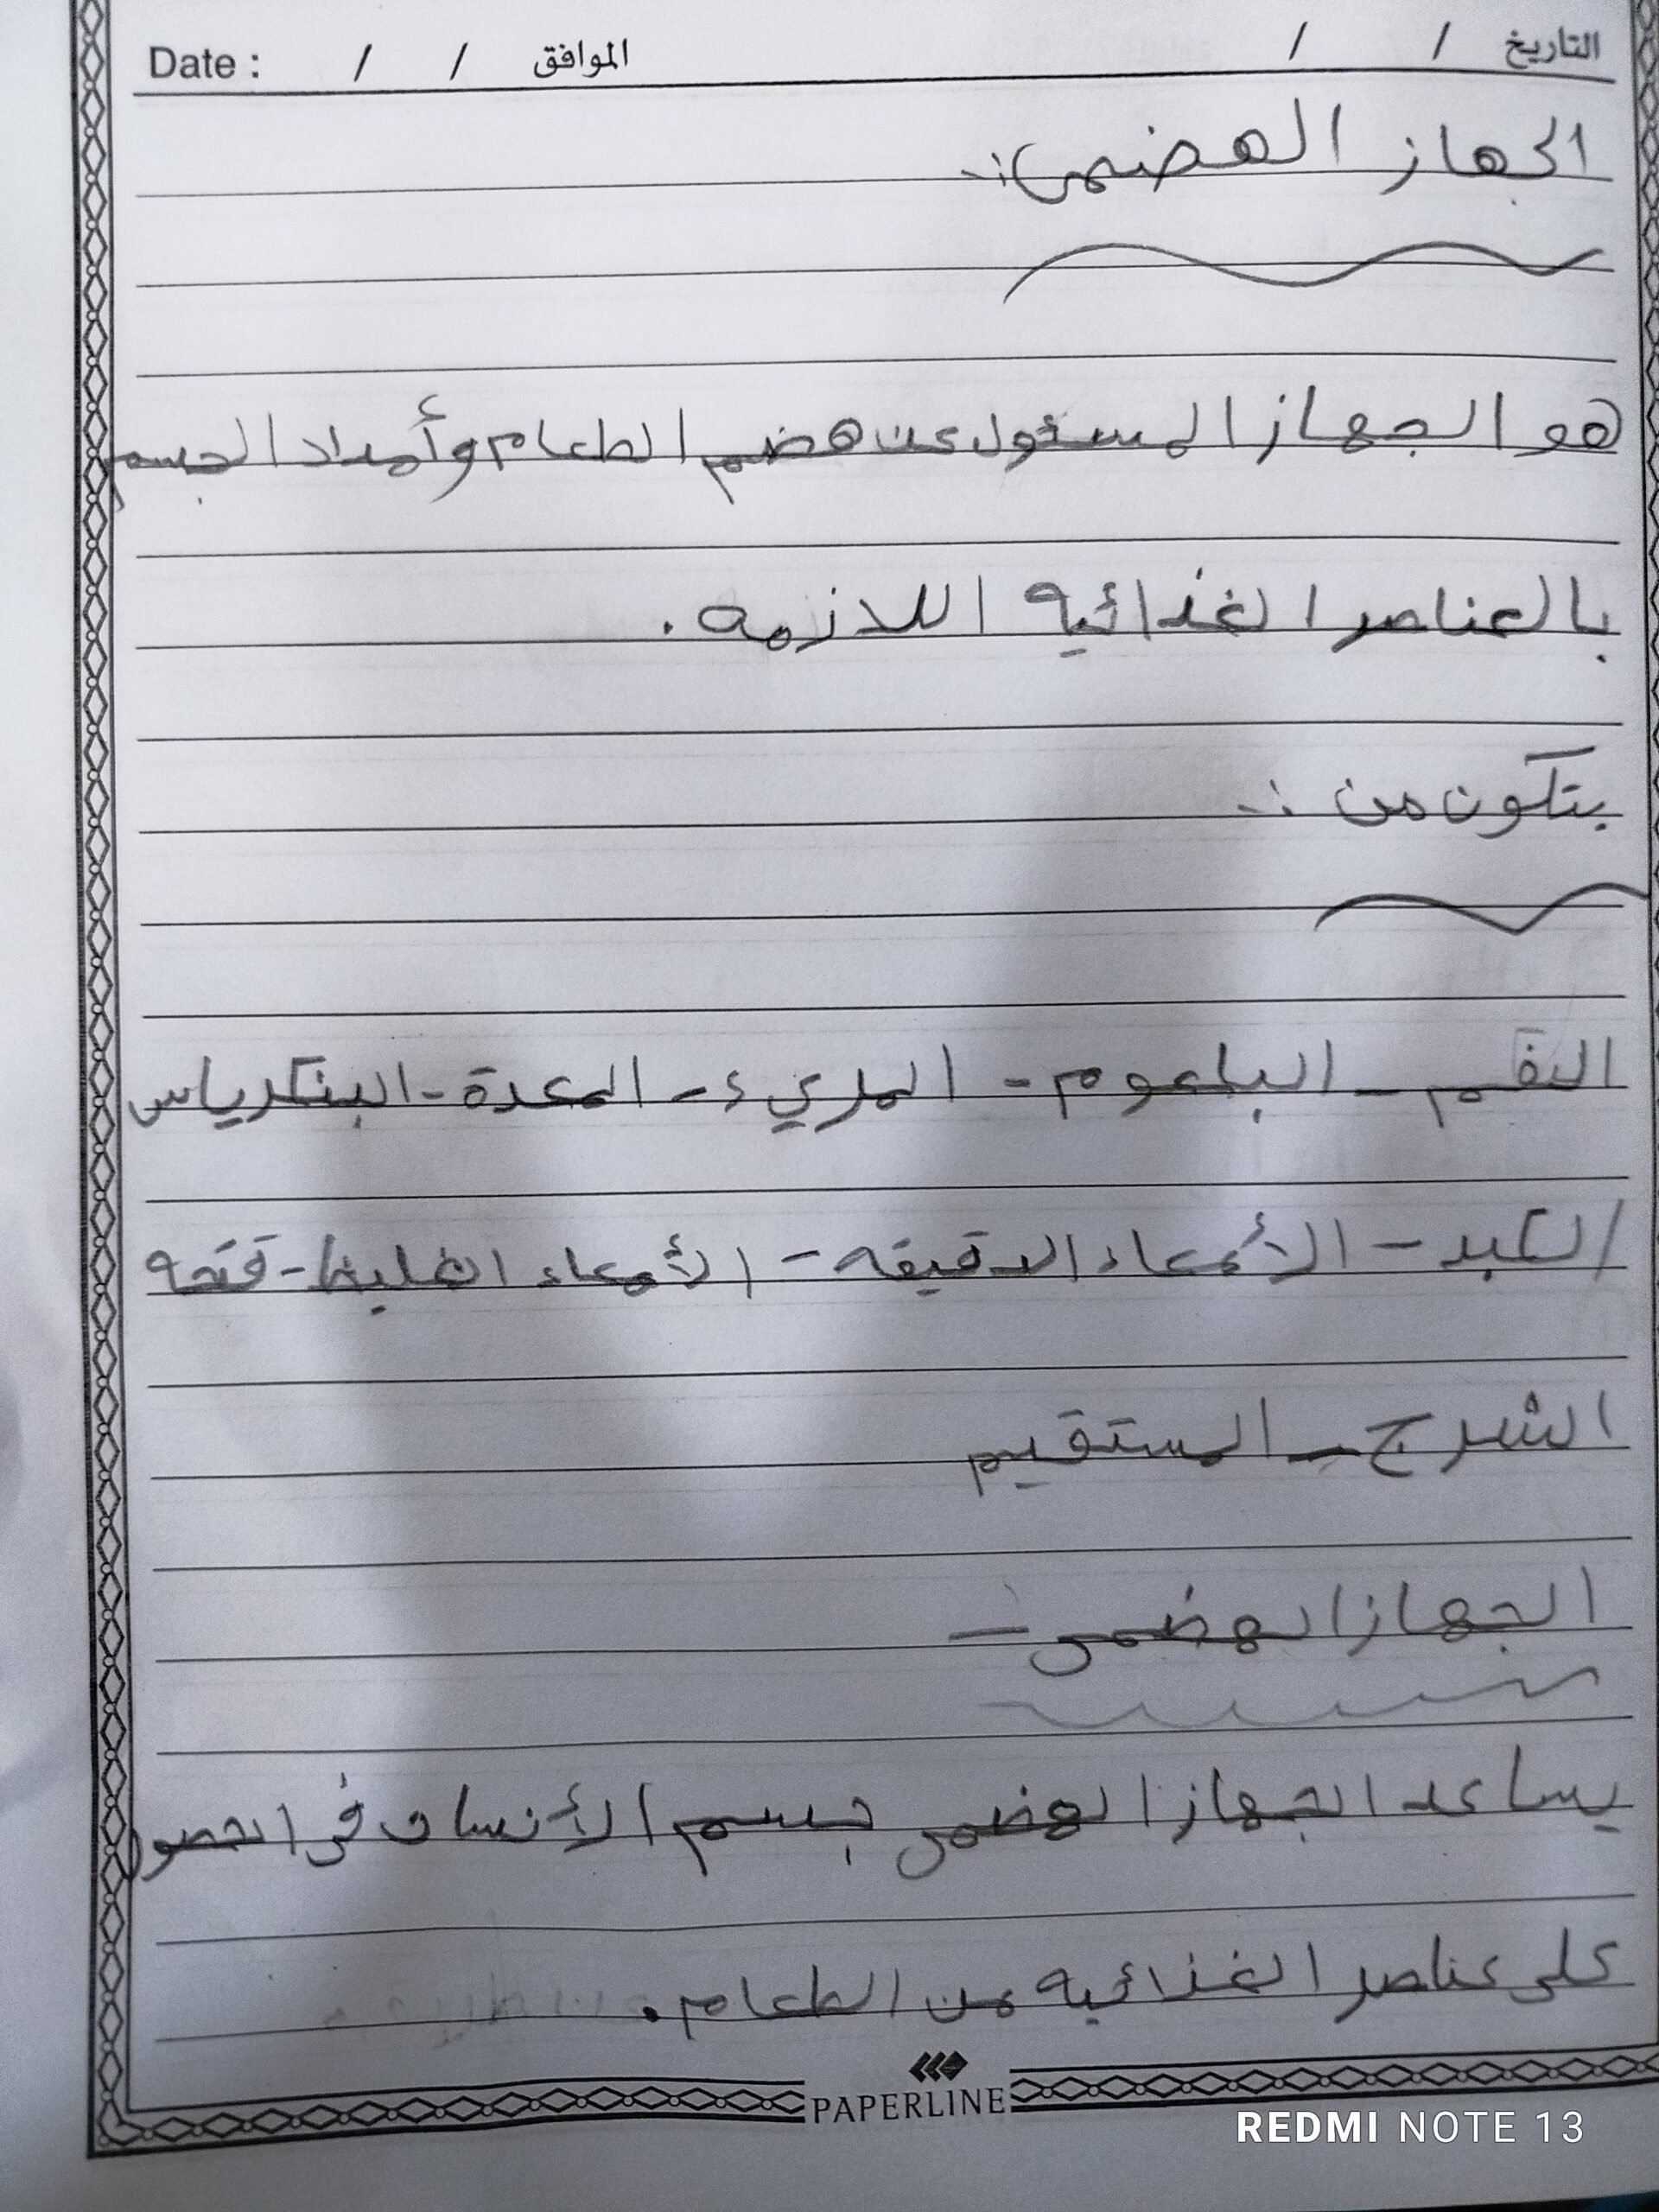 التاريخ / / الموافق / / Date :
الجهاز الهضمى :-
هو الجهاز المسئول عن هضم الطعام وأمداد الجسم
بالعناصر الغذائيه اللازمه .
يتكون من :-
الفم - البلعوم - المريء - المعدة - البنكرياس
الكبد - الأمعاء الدقيقه - الأمعاء الغليظة - فتحه
الشرج - المستقيم
الجهاز الهضمى -
يساعد الجهاز الهضمى جسم الأنسان فى الحصول
على عناصر الغذائيه من الطعام .
PAPERLINE
REDMI NOTE 13